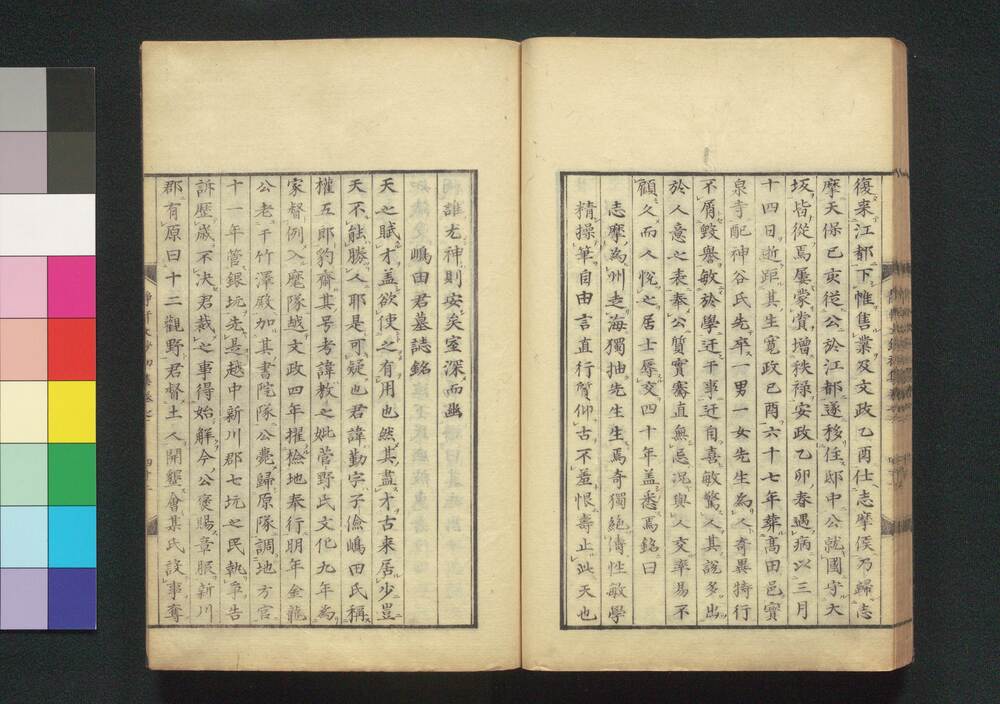 復来江都下帷售業及文政乙酉仕志摩侯乃歸志
摩天保己亥從公於江都遂移住邸中公就國守大
坂皆從焉屢蒙賞增秩祿安政乙卯春遇病以三月
十四日逝距其生寛政己酉六十七年葬高田邑寳
泉寺配神谷氏先卒一男一女先生為人奇異猗行
不屑毀譽敏於學迂于事迂自喜敏驚人其說多出
於人意之表奉公質實謇直無忌况與人交率易不
顧久而人悅之居士辱交四十年盖悉焉銘曰
志摩為州走海獨抽先生生焉奇獨絕儔性敏學
精操筆自由言直行質仰古不羞恨壽止此天也
誰尤神則安矣室深而幽
嶋田君墓誌銘
天之賦才盖欲使之有用也然其盡才古来居少豈
天不能勝人耶是可疑也君諱勤字子儉嶋田氏稱
權五郎豹齋其号考諱教之妣菅野氏文化九年為
家督例入麾隊越文政四年擢檢地奉行明年金龍
公老于竹澤殿加其書院隊公薨歸原隊調地方官
十一年管銀坑先是越中新川郡七坑之民執爭告
訴歷歲不决君裁之事得始解今公褒賜章服新川
郡有原曰十二觀野君督土人開墾會某氏設事奪